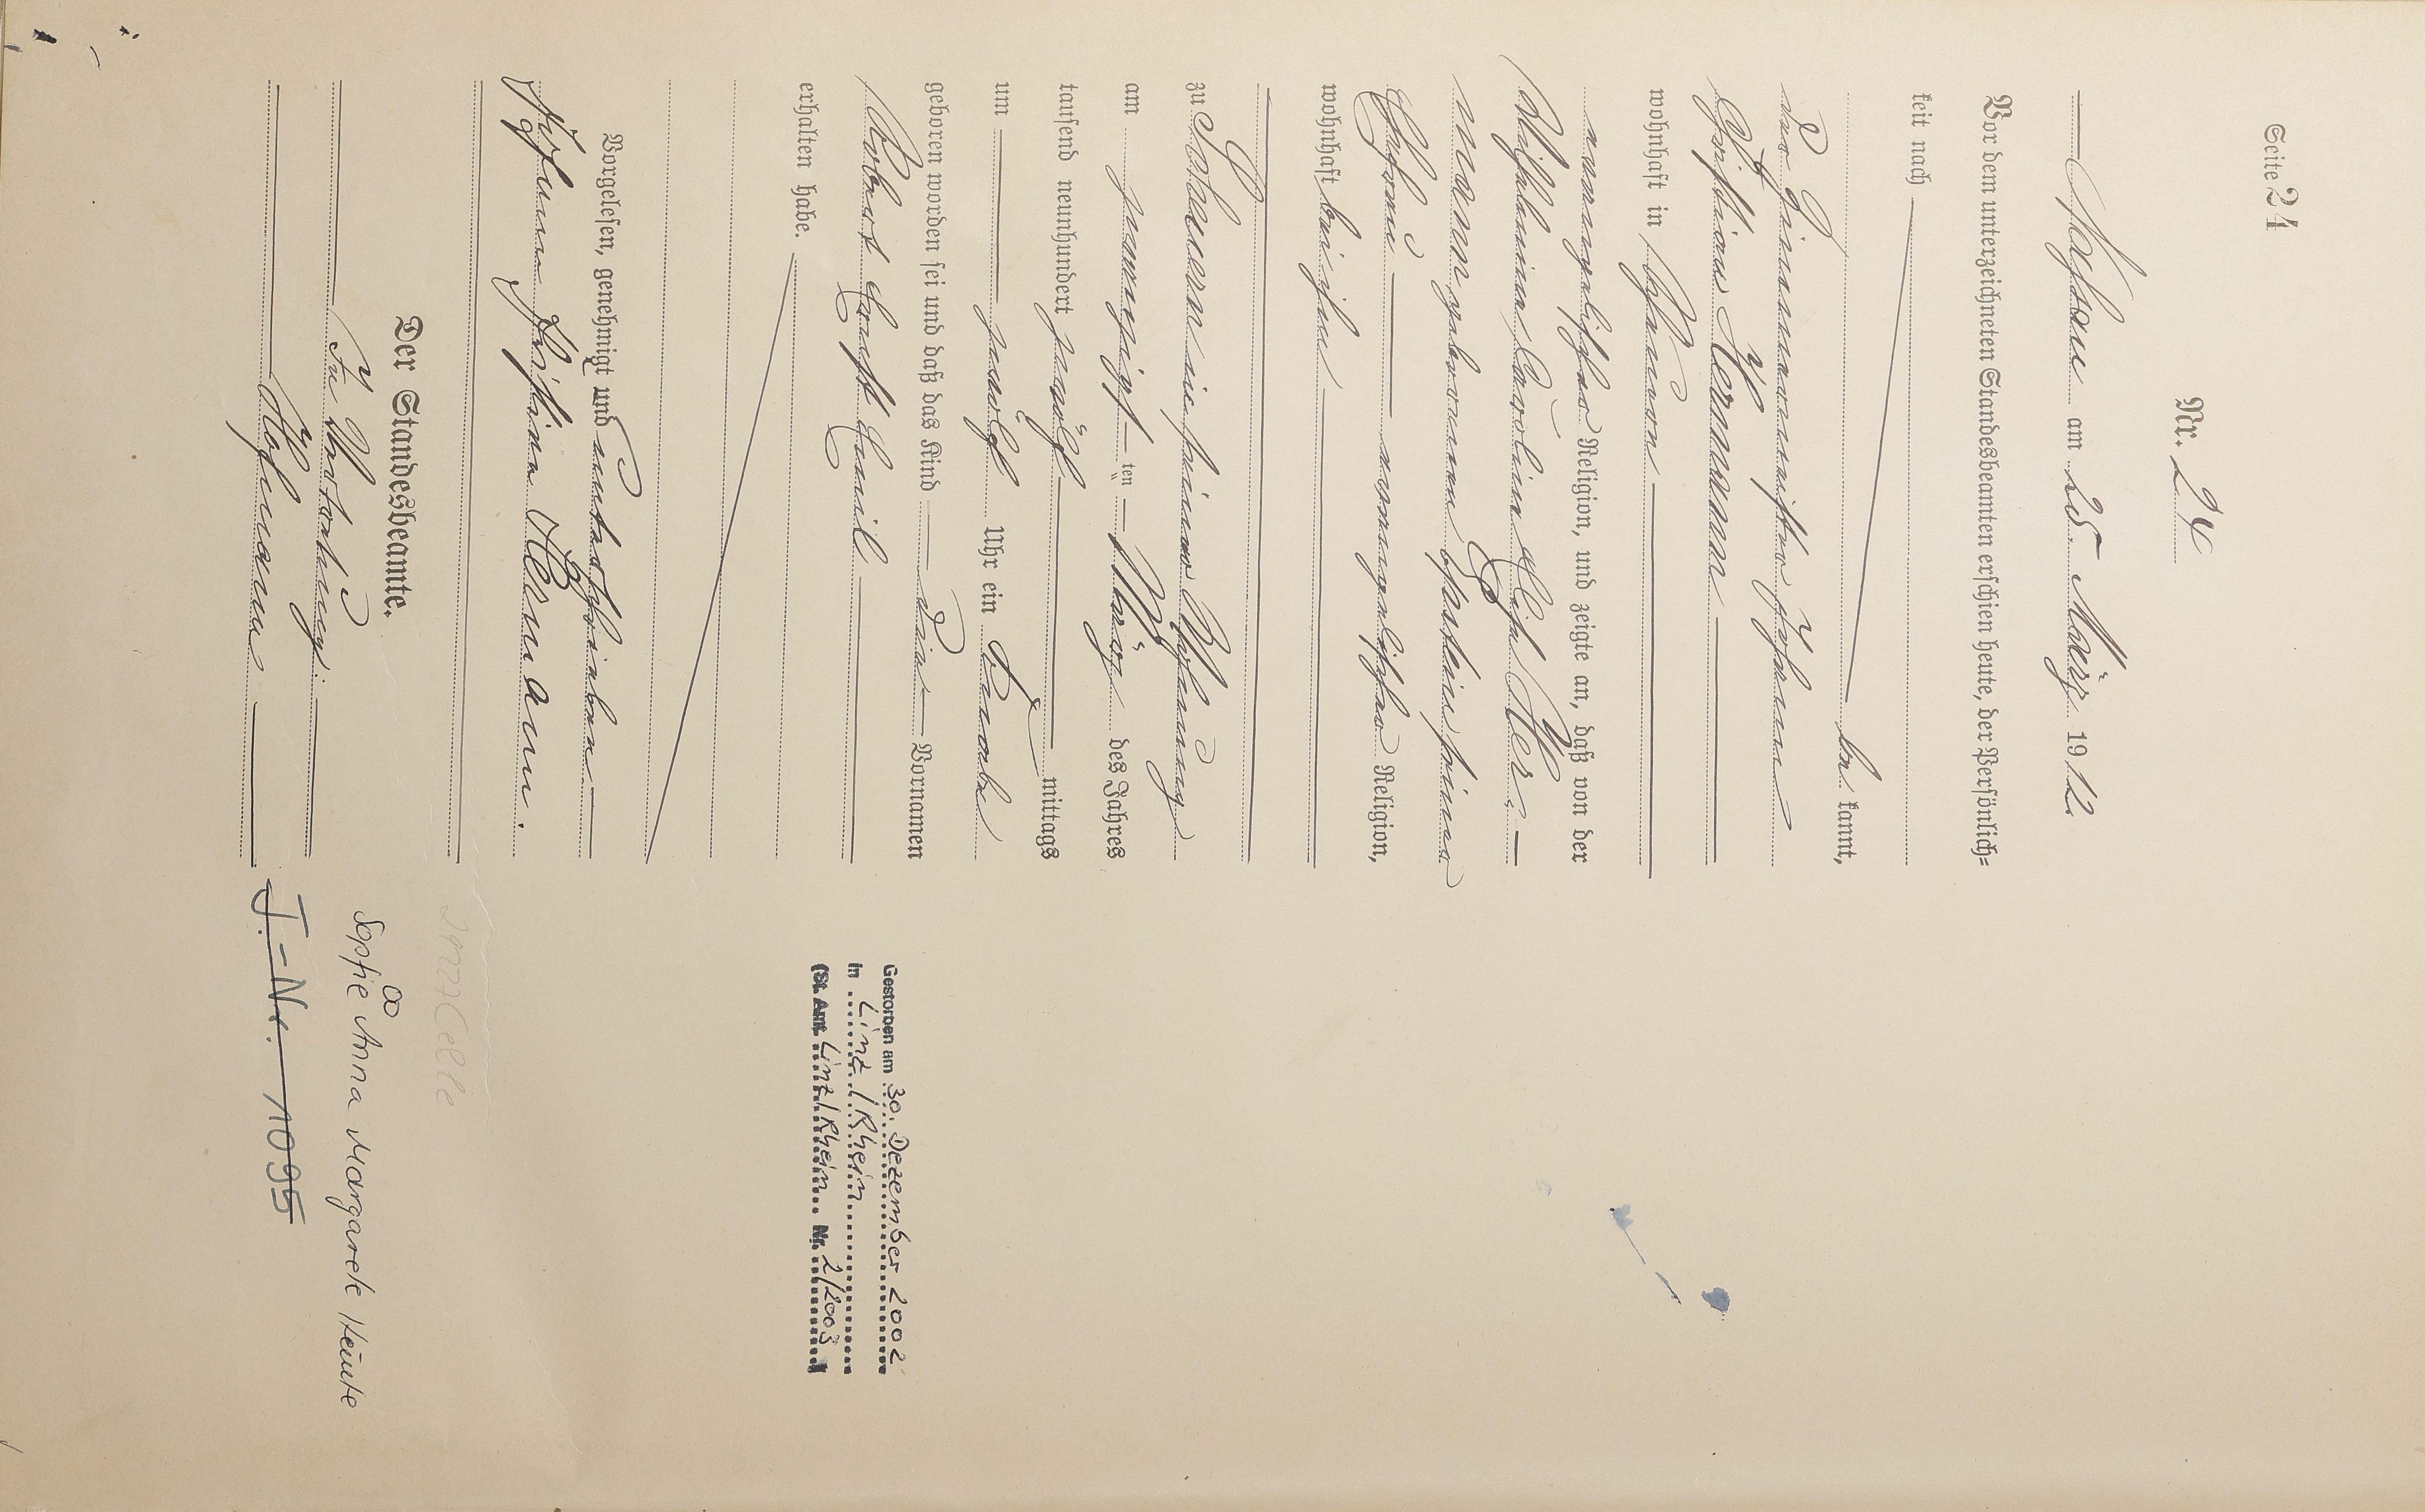 Seite 24
Nr. 24
Nassau am 25. März 1912.
Vor dem unterzeichneten Standesbeamten erschien heute, der Persönlich=
keit nach
be kannt,
der Zimmermeister Johann
Christian Hermann
wohnhaft in Scheuern
evangelischer Religion, und zeigte an, daß von der
Wilhelmine Caroline Elise Her=
mann geborenen Opstein seiner
Ehefrau evangelischer Religion,
wohnhaft bei ihm
zu Scheuern in seiner Wohnung
am zwanzigsten März des Jahres
tausend neunhundert zwölf mittags
um zwölf Uhr ein Knabe
geboren worden sei und daß das Kind die Vornamen
Robert Ernst Emil
erhalten habe.
Vorgelesen, genehmigt und unterschrieben
Johann Christian Hermann.
Der Standesbeamte.
In Vertretung:
Hofmann
Gestorben am 30. Dezember 2002
in Linz/Rhein
(St. Amt Linz/Rhein Nr. 2/2003)
∞
Sophie Anna Margarete Heinte
J.-Nr. 1095